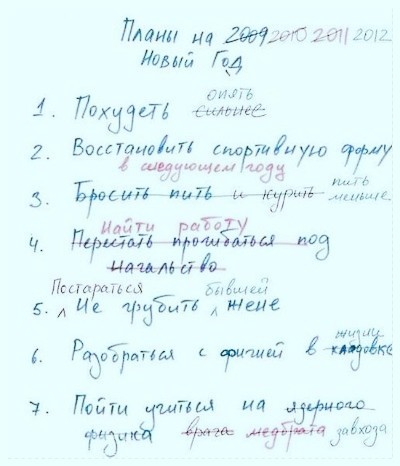 Планы на 2009 2010 2011 2012
Новый Год
опять
1. Похудеть сильнее
2. Восстановить спортивную форму
в следующем году
3. Бросить пить и курить пить меньше
Найти работу
4. Перестать прогибаться под
начальство
Постараться бывшей
5. Не грубить жене
жизни
6. Разобраться с фигнёй в кладовке
7. Пойти учиться на ядерного
физика врача медбрата завхоза